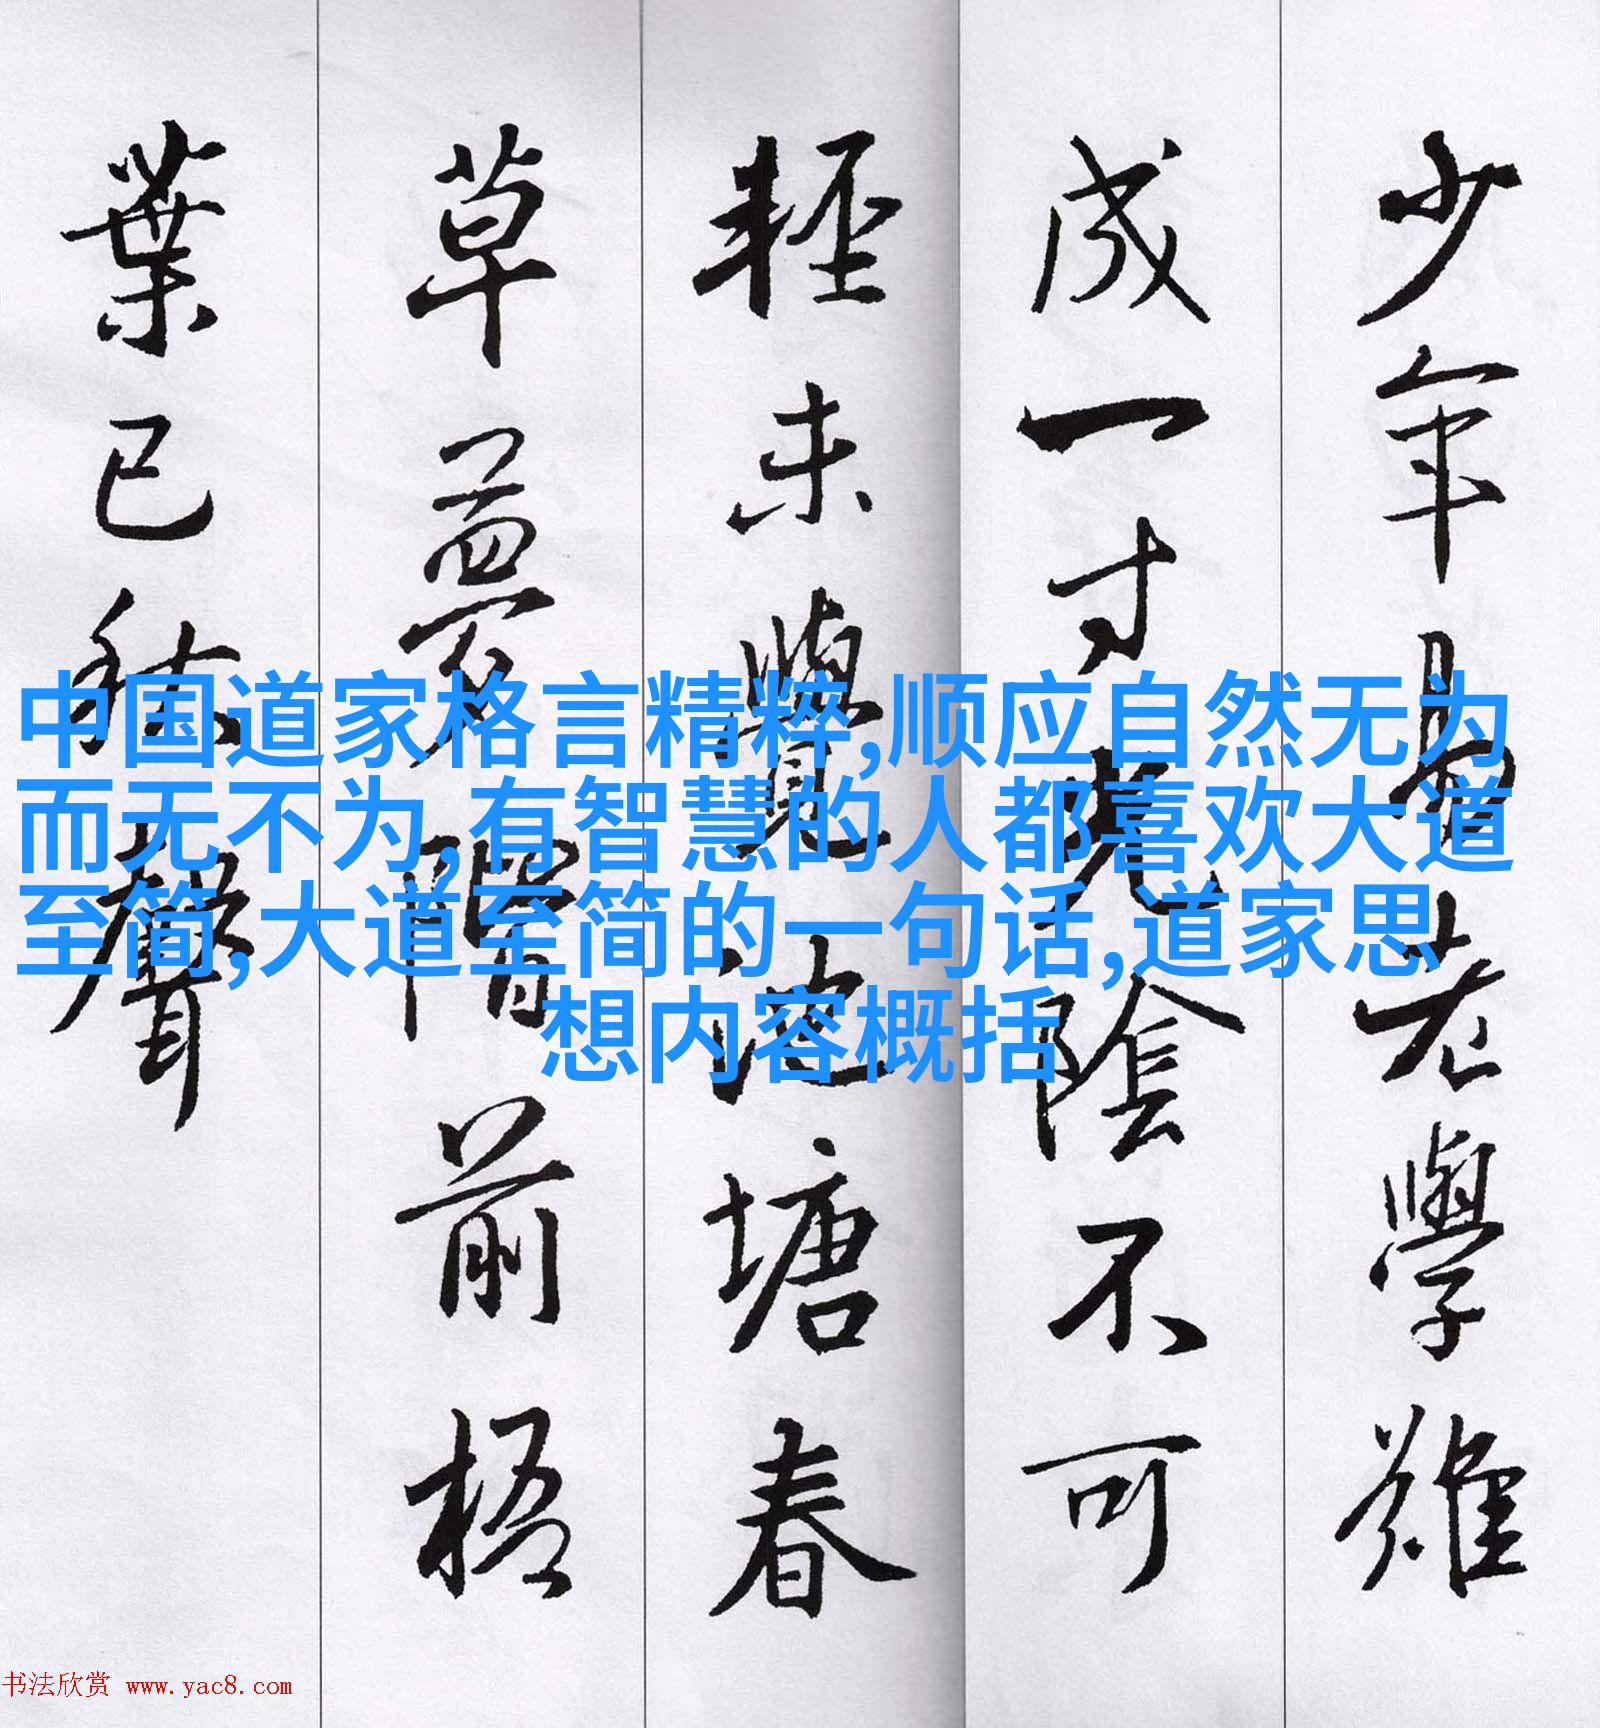 少年易老學難
成一寸光陰不可
輕未覺池塘春
草夢階前梧
葉已秋聲
中国道家格言精粹,顺应自然无为
而无不为,有智慧的人都喜欢大道
至简,大道至简的一句话,道家思
想内容概括
书法欣赏 www.yac8.com